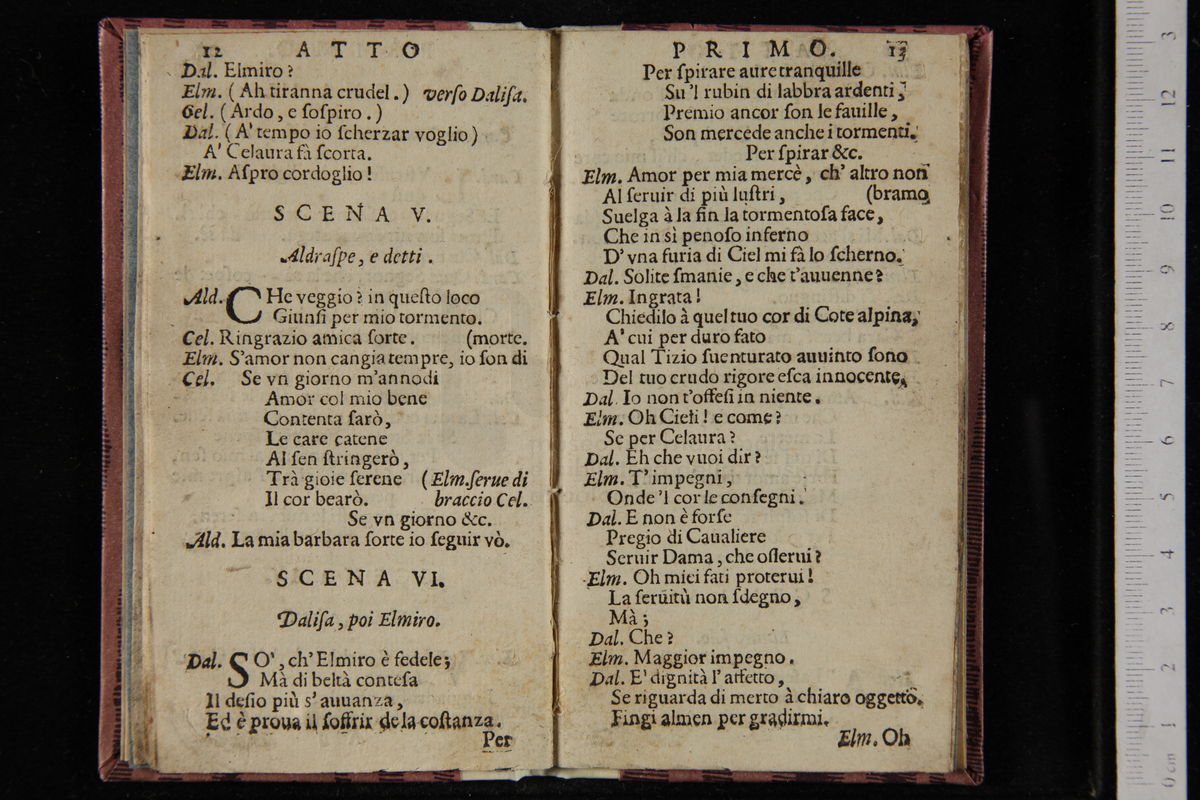 12 ATTO
Dal. Elmiro?
Elm. (Ah tiranna crudel.) verſo Daliſa.
Cel. (Ardo, e ſoſpiro.)
Dal. (A' tempo io ſcherzar voglio)
A' Celaura fà ſcorta.
Elm. Aſpro cordoglio!
SCENA V.
Aldraſpe, e detti.
Ald. CHe veggio? in queſto loco
Giunſi per mio tormento.
Cel. Ringrazio amica ſorte. (morte.
Elm. S'amor non cangia tempre, io ſon di
Cel. Se vn giorno m'annodi
Amor col mio bene
Contenta ſarò,
Le care catene
Al ſen ſtringerò,
Trà gioie ſerene (Elm. ſerue di
Il cor bearò. braccio Cel.
Se vn giorno &c.
Ald. La mia barbara ſorte io ſeguir vò.
SCENA VI.
Daliſa, poi Elmiro.
Dal. SO', ch'Elmiro è fedele;
Mà di beltà conteſa
Il deſio più s'auuanza,
Ed è proua il ſoffrir de la coſtanza.
Per
PRIMO. 13
Per ſpirare aure tranquille
Su'l rubin di labbra ardenti,
Premio ancor ſon le fauille,
Son mercede anche i tormenti.
Per ſpirar &c.
Elm. Amor per mia mercè, ch'altro non
Al ſeruir di più luſtri, (bramo
Suelga à la fin la tormentoſa face,
Che in sì penoſo inferno
D'vna furia di Ciel mi fà lo ſcherno.
Dal. Solite ſmanie, e che t'auuenne?
Elm. Ingrata!
Chiedilo à quel tuo cor di Cote alpina,
A' cui per duro fato
Qual Tizio ſuenturato auuinto ſono
Del tuo crudo rigore eſca innocente.
Dal. Io non t'offeſi in niente.
Elm. Oh Cieli! e come?
Se per Celaura?
Dal. Eh che vuoi dir?
Elm. T'impegni,
Onde'l cor le conſegni.
Dal. E non è forſe
Pregio di Caualiere
Seruir Dama, che oſſerui?
Elm. Oh miei fati proterui!
La ſeruitù non ſdegno,
Mà;
Dal. Che?
Elm. Maggior impegno.
Dal. E' dignità l'affetto,
Se riguarda di merto à chiaro oggetto.
Fingi almen per gradirmi.
Elm. Oh
0 cm 1 2 3 4 5 6 7 8 9 10 11 12
3